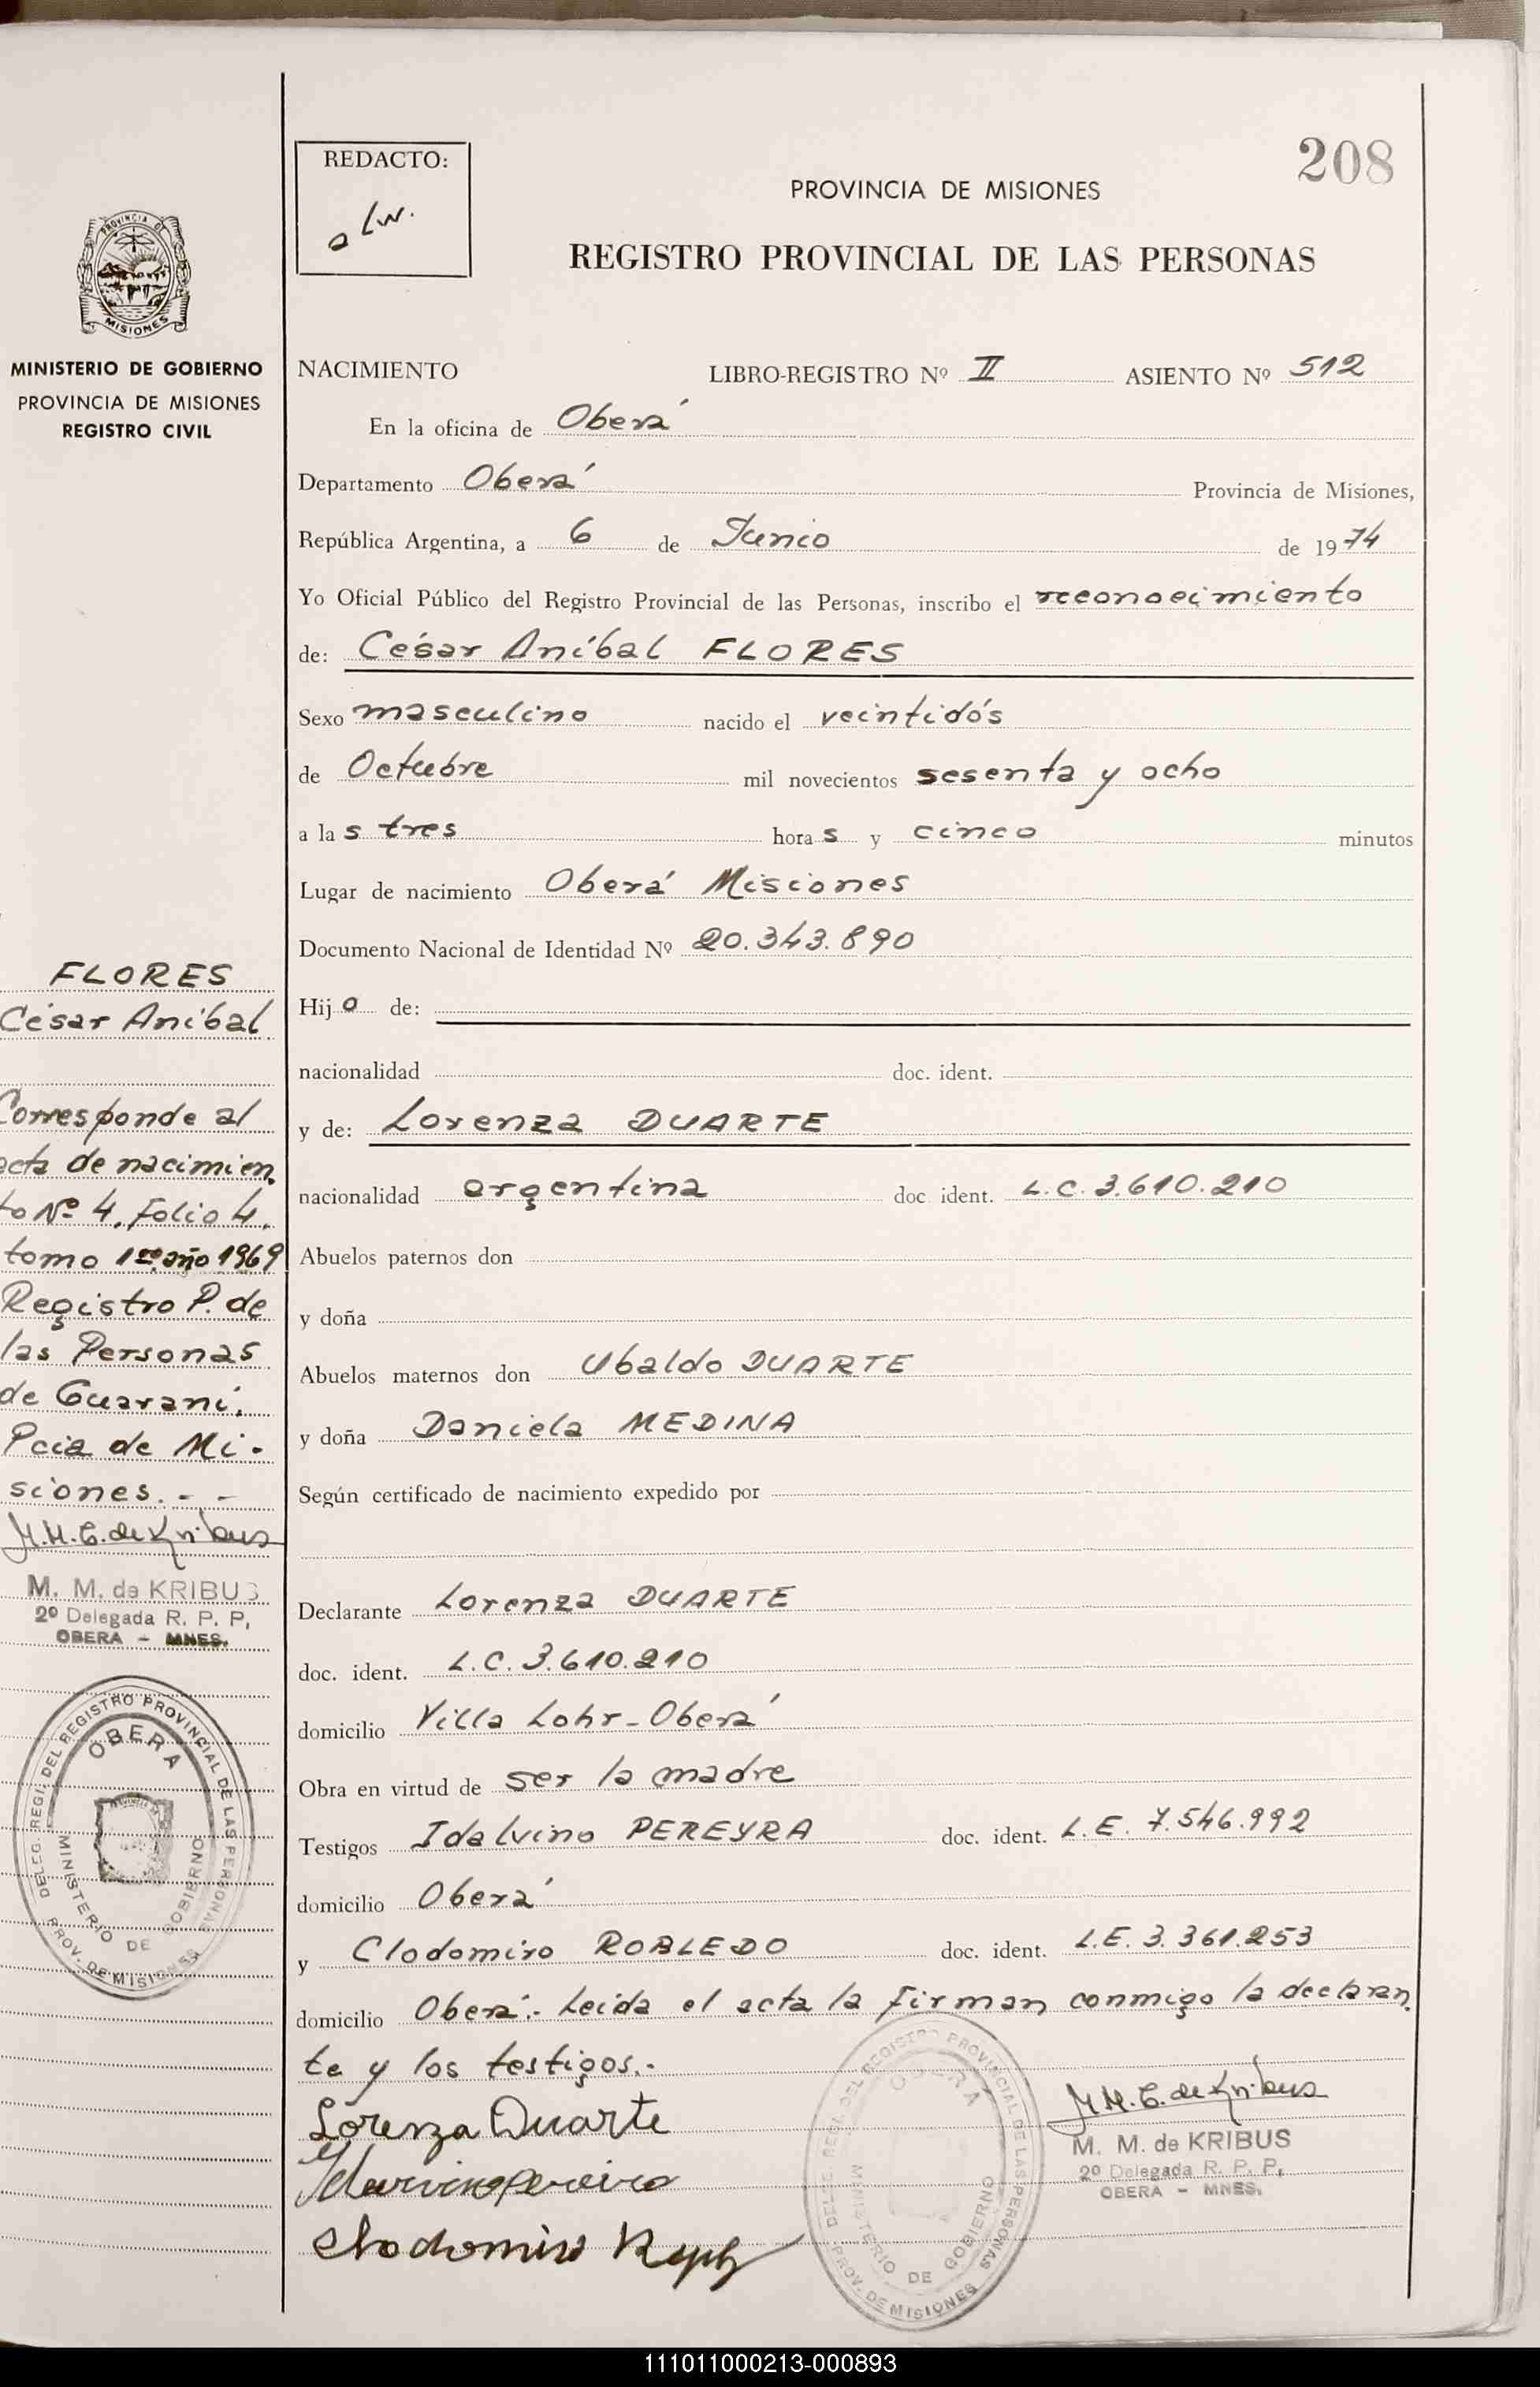 208
REDACTO:
PROVINCIA DE MISIONES
REGISTRO PROVINCIAL DE LAS PERSONAS
PROVINCIA DE
MISIONES
MINISTERIO DE GOBIERNO
PROVINCIA DE MISIONES
REGISTRO CIVIL
NACIMIENTO LIBRO-REGISTRO Nº II ASIENTO Nº 512
En la oficina de Oberá
Departamento Oberá Provincia de Misiones,
República Argentina, a 6 de Junio de 1974
Yo Oficial Público del Registro Provincial de las Personas, inscribo el reconocimiento
de: César Aníbal FLORES
Sexo masculino nacido el veintidós
de Octubre mil novecientos sesenta y ocho
a las tres horas y cinco minutos
Lugar de nacimiento Oberá Misiones
Documento Nacional de Identidad Nº 20.343.890
Hijo de:
nacionalidad doc. ident.
y de: Lorenza DUARTE
nacionalidad argentina doc ident. L.C. 3.610.210
Abuelos paternos don
y doña
Abuelos maternos don Ubaldo DUARTE
y doña Daniela MEDINA
Según certificado de nacimiento expedido por
Declarante Lorenza DUARTE
doc. ident. L.C. 3.610.210
domicilio Villa Lohr-Oberá
Obra en virtud de ser la madre
Testigos Idalvino PEREYRA doc. ident. L.E. 7.546.992
domicilio Oberá
y Clodomiro ROBLEDO doc. ident. L.E. 3.361.253
domicilio Oberá.- Leída el acta la firman conmigo la declaran
te y los testigos.-
Lorenza Duarte
M.M.C. de Kribus
M. M. de KRIBUS
2º Delegada R. P. P,
OBERA - MNES.
DELEG. REGI. DEL REGISTRO PROVINCIAL DE LAS PERSONAS
OBERA
MINISTERIO DE GOBIERNO
PROV. DE MISIONES
FLORES
César Aníbal
Corresponde al
acta de nacimien
to Nº 4. Folio 4.
tomo 1ro año 1969
Registro P. de
las Personas
de Guaraní.
Pcia de Mi-
siones. - -
M.M.C. de Kribus
M. M. de KRIBUS
2º Delegada R. P. P,
OBERA - MNES.
DELEG. REGI. DEL REGISTRO PROVINCIAL DE LAS PERSONAS
OBERA
MINISTERIO DE GOBIERNO
PROV. DE MISIONES
111011000213-000893